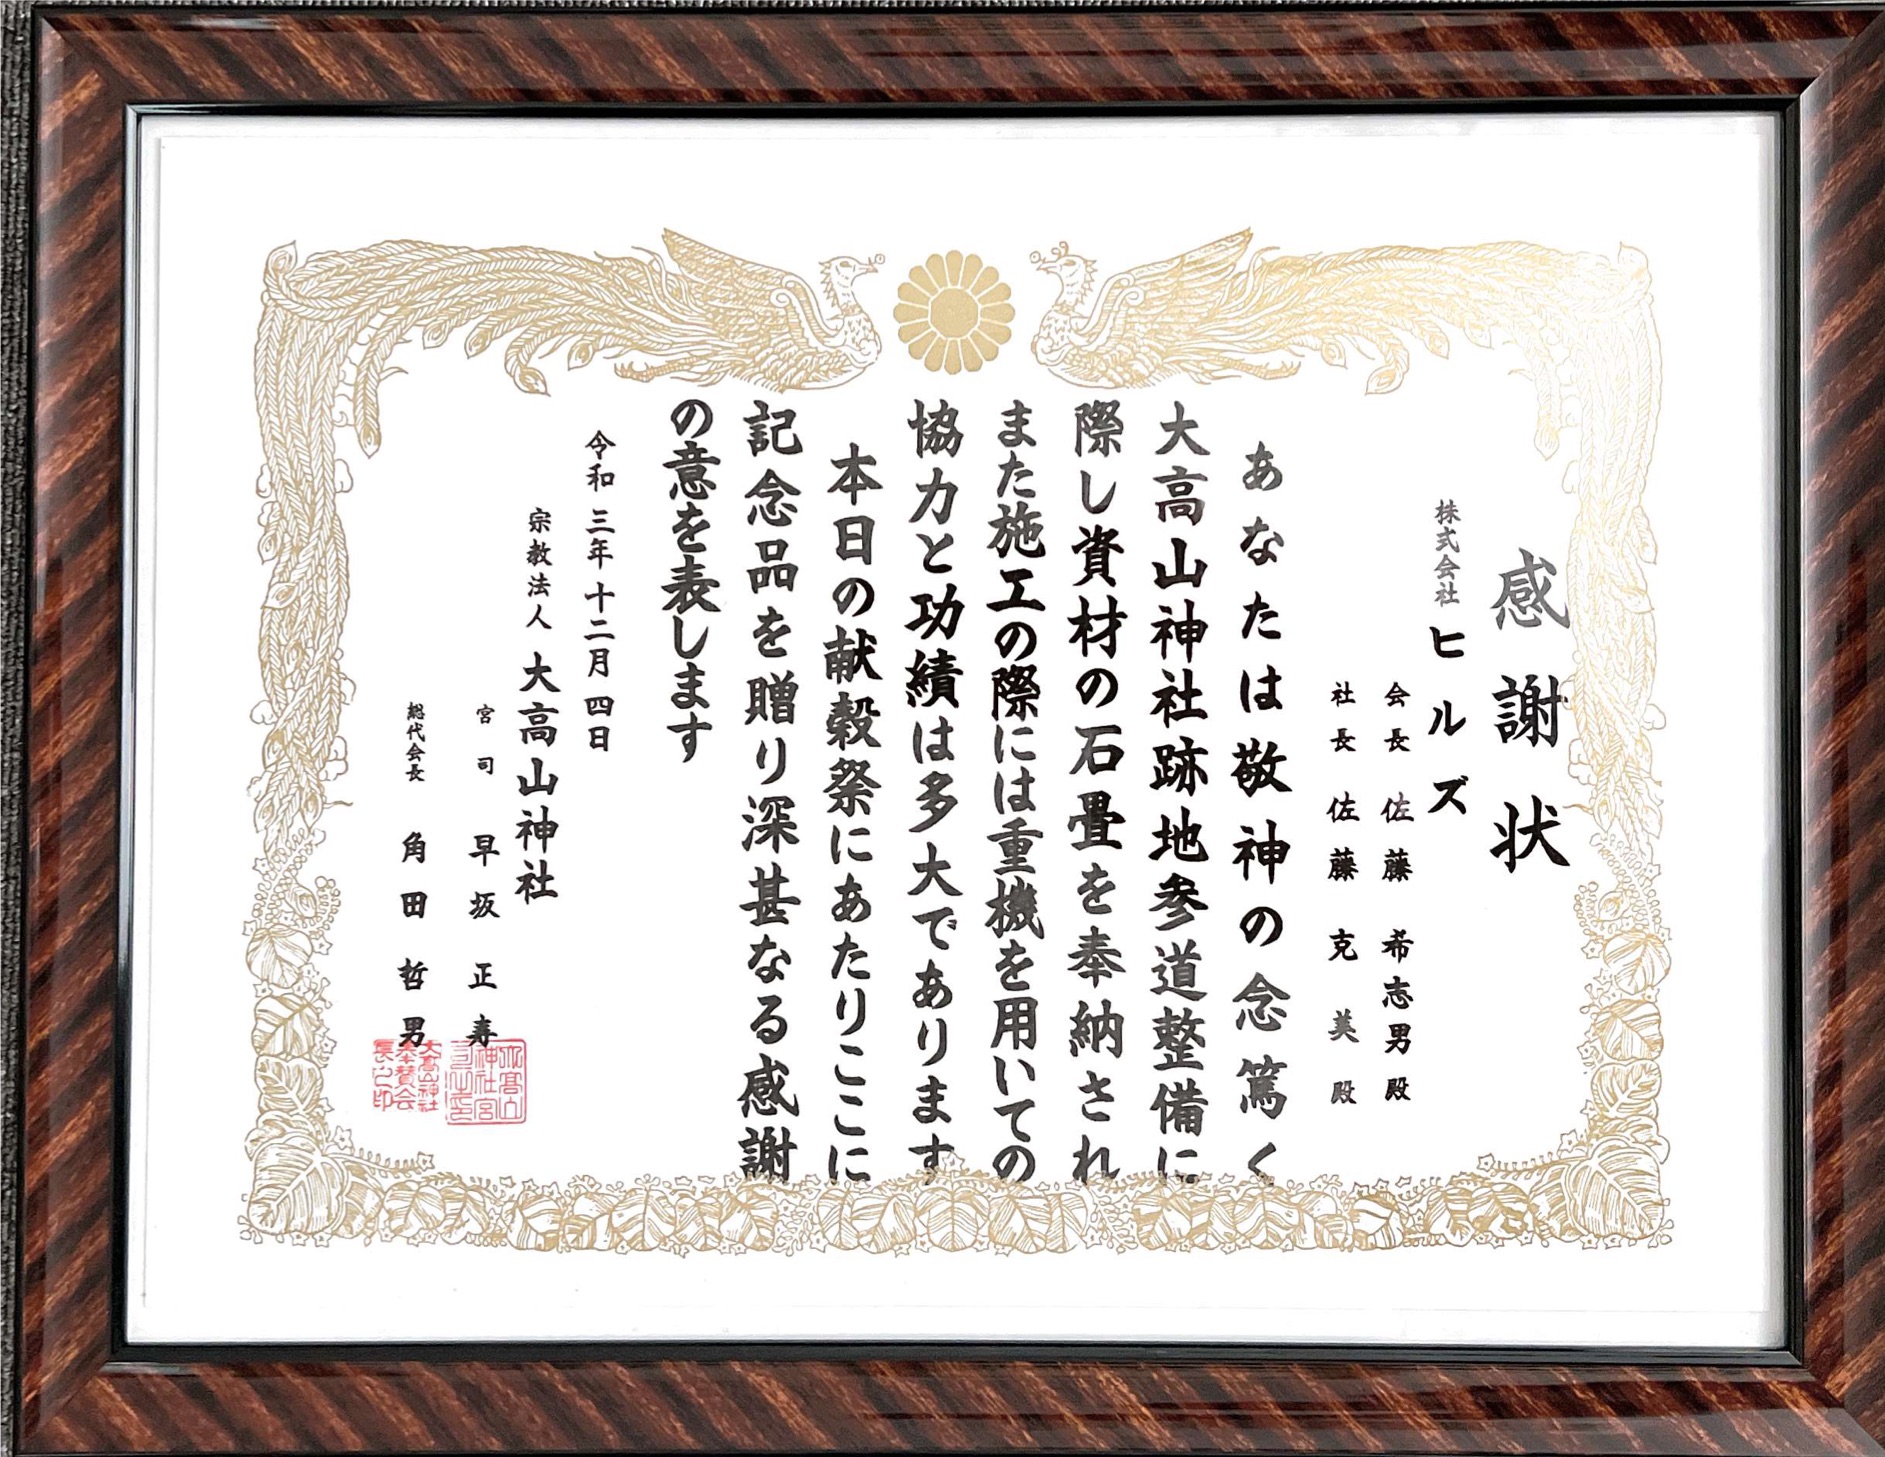 感謝状
株式会社 ヒルズ
会長 佐藤 希志男 殿
社長 佐藤 克美 殿
あなたは敬神の念篤く
大高山神社跡地参道整備に
際し資材の石畳を奉納され
また施工の際には重機を用いての
協力と功績は多大であります
本日の献穀祭にあたりここに
記念品を贈り深甚なる感謝
の意を表します
令和三年十二月四日
宗教法人 大高山神社
宮司 早坂正寿
総代会長 角田哲男
大高山神社
奉賛会
長之印